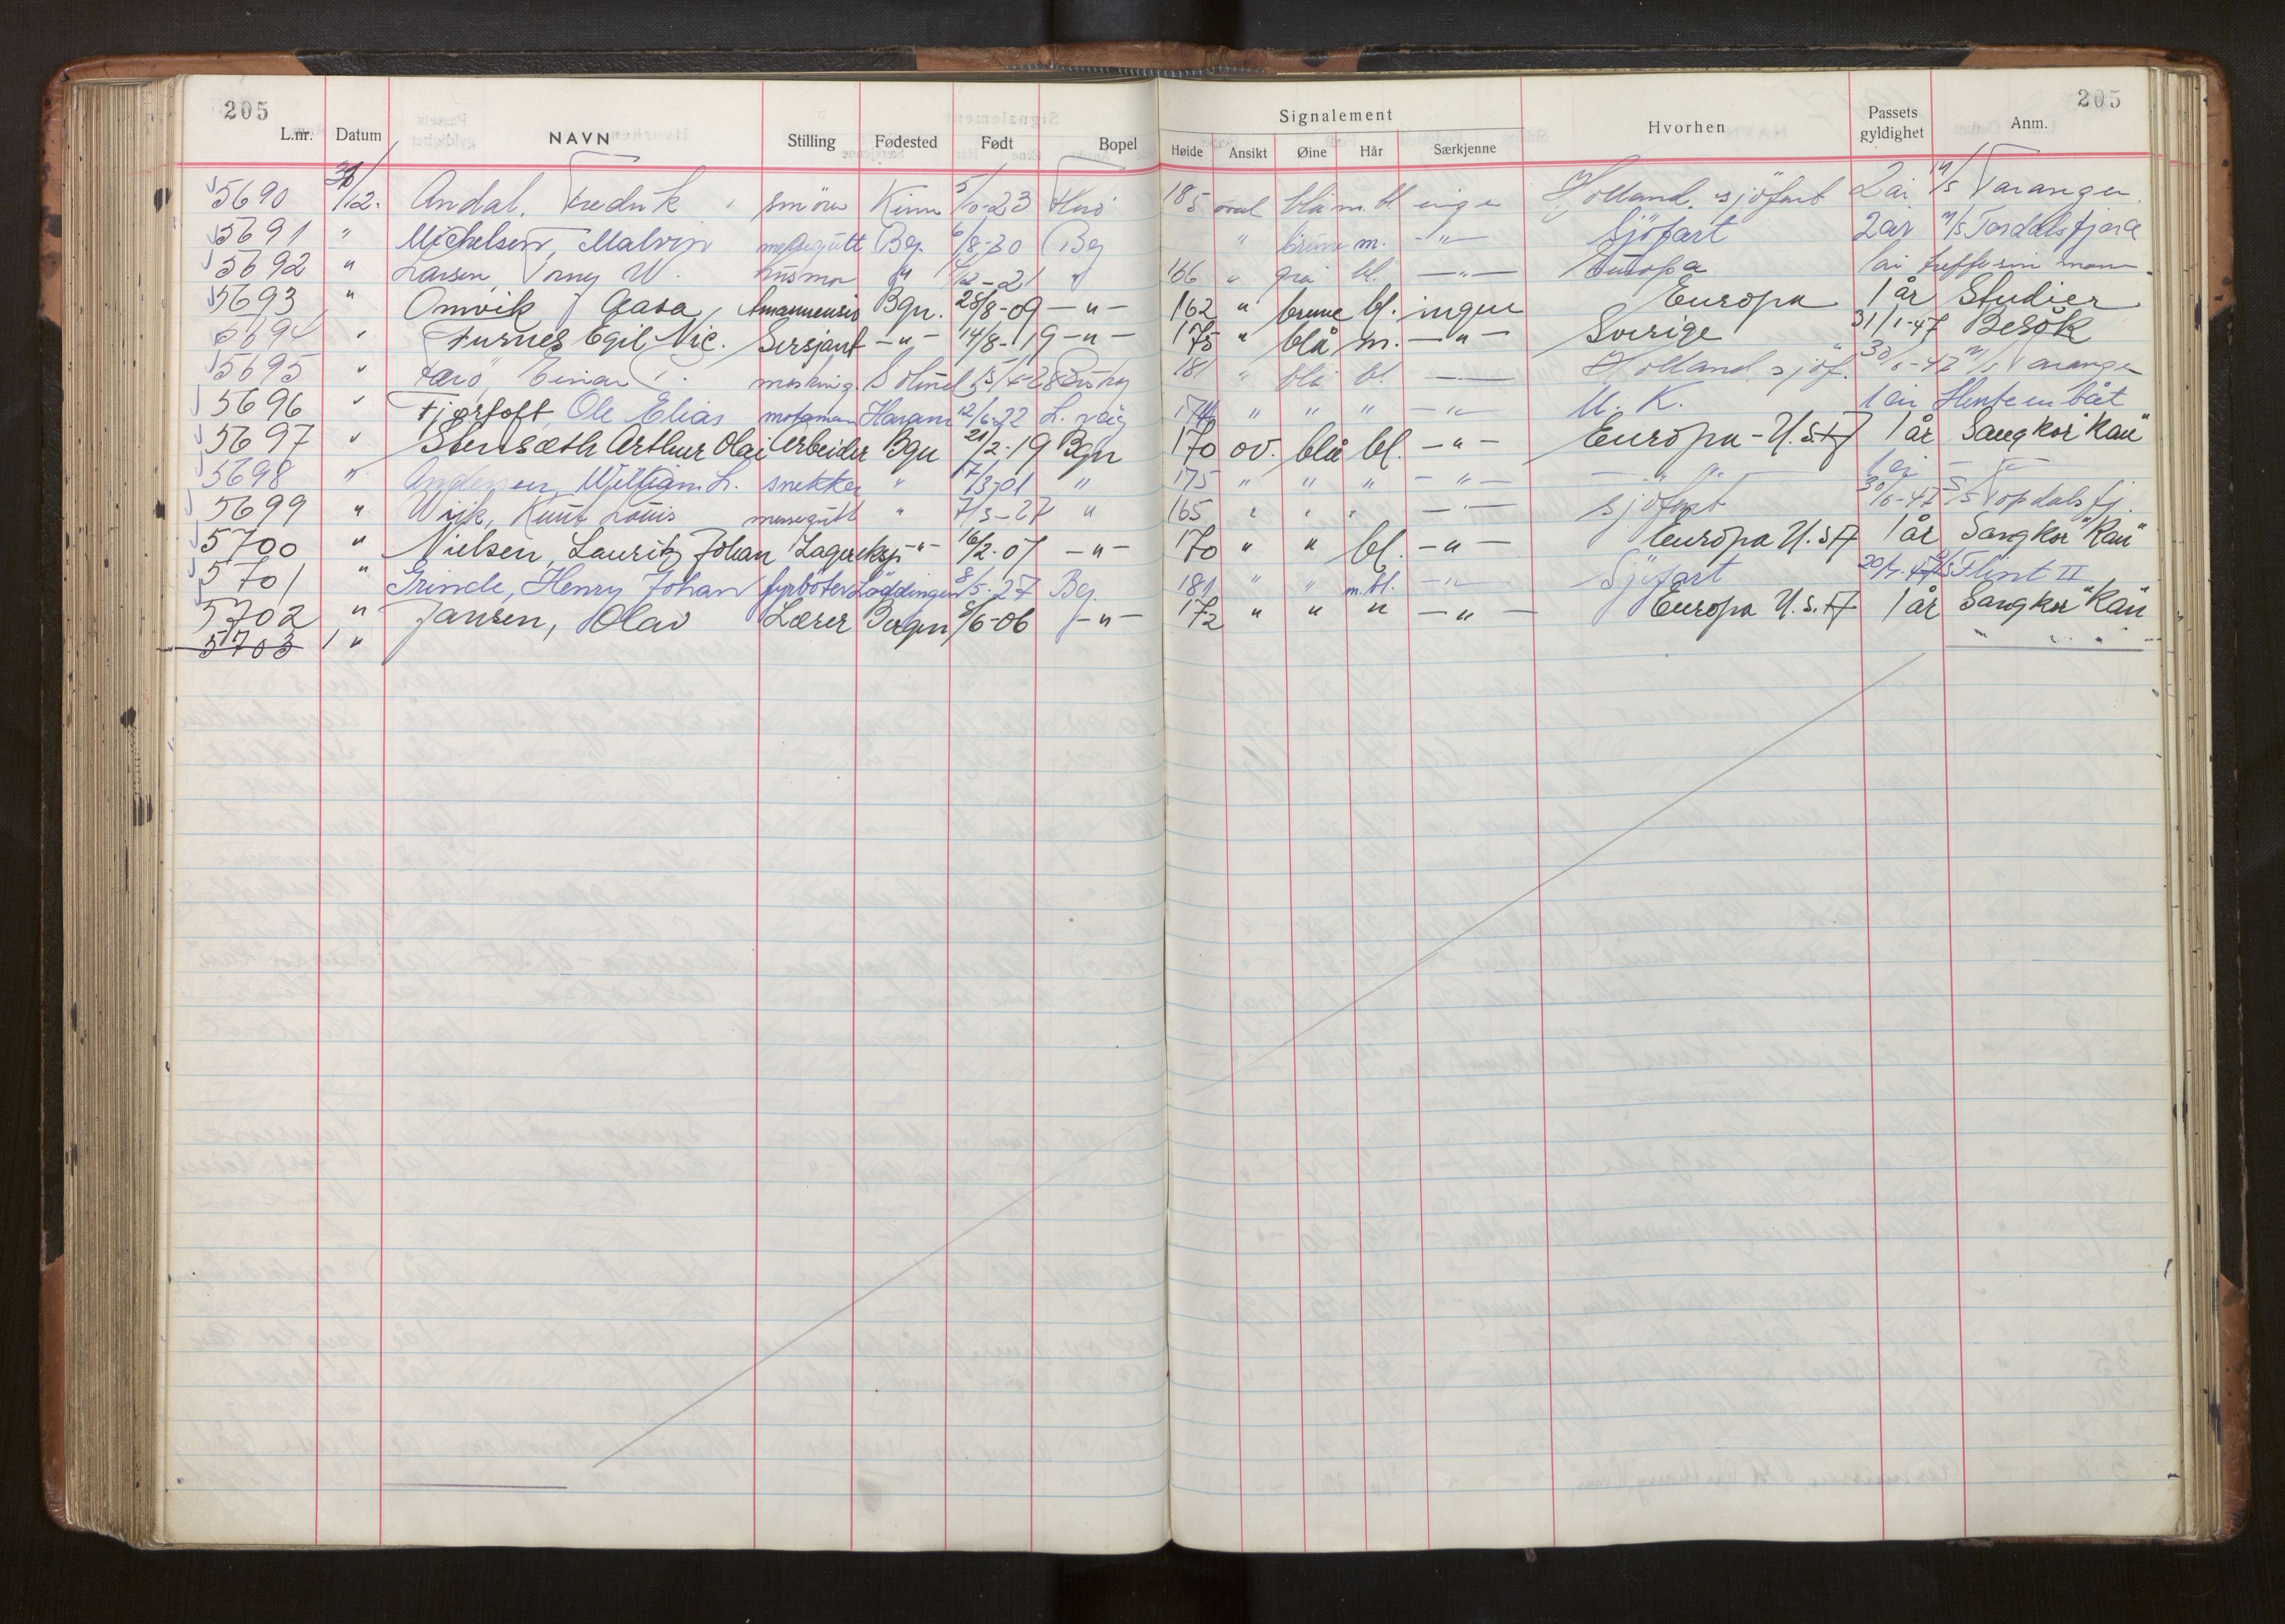 205 205
L.nr. Datum NAVN Stilling Fødested Født Bopel Signalement Hvorhen Passets gyldighet Anm.
Høide Ansikt Øine Hår Særkjenne
5690 /12. Andal, Fredrik Kinn 185 oval blå m. bl. Holland, sjöfart 2 år M/S Varanger
5691 " Michelsen, Malvin messegutt Bg. 6/8-30 Bg " brune m. -"- Sjöfart 2 år M/S
5692 " Larsen, Torny W. husmor " " 166 " grå bl. -"- Europa 1 år
5693 " Omvik, Aasa, Amanuensis Bgn. 28/8-09 -"- 162 " brune bl. ingen Europa 1 år Studier
5694 " Furnes Egil Nic. Sersjant -"- 14/8-19 -"- 175 " blå m. -"- Sverige 31/1-47 Besök
5695 " Færö, Einar 181 " blå bl. Holland sjöf. M/S Varanger
5696 " Fjørtoft, Ole Elias motormann Haram 12/6-22 174 " " " -"- U. K. 1 år Hente en båt
5697 " Stensæth Arthur Olai Arbeider Bgn 21/2-19 Bgn 170 ov. blå bl. -"- Europa - U.S.A 1 år Sangkor "Kåu"
5698 " Andersen, William L. snekker " 17/3-01 " 175 " " " -"- -"- 1 år -"-
5699 " Wiik, Knut Louis messegutt " 7/3-27 " 165 " " " -"- sjöfart 30/6-47 S/S Topdalsfj.
5700 " Nielsen, Lauritz Johan Lagereksp -"- 16/2-07 -"- 170 " " bl. -"- Europa U.S.A 1 år Sangkor "Kåu"
5701 " Grinde, Henry Johan fyrböter Löddingen 8/5-27 Bg. 181 " " m.bl. -"- Sjöfart Flint II
5702 " Jansen, Olav Lærer Bergen 8/6-06 -"- 172 " " " -"- Europa U.S.A 1 år Sangkor "Kåu"
5703 "